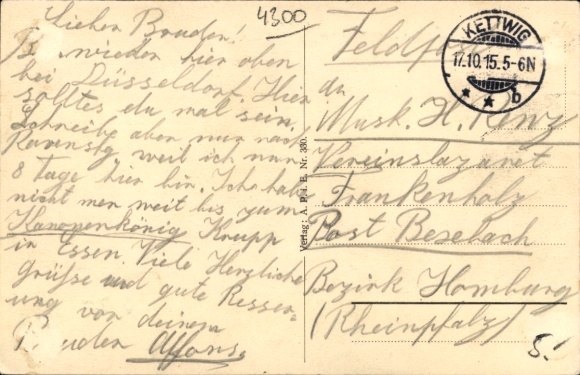 4300
Lieber Bruder!
Bin wieder hier oben
bei Düsseldorf. Hier
solltes du mal sein.
Schreibe aber nur nach
Ravensbg weil ich nur
8 Tage hier bin. Ich habe
nicht mer weit bis zum
Kanonenkönig Krupp
in Essen. Viele Herzliche
Grüße und gute Besser-
ung von deinem
Bruder Alfons.
Verlag: A. P. i. E. Nr. 330.
Feldpost
KETTWIG
17.10.15.5-6N
* * b
an
Musk. H. Renz
Vereinslazaret
Frankenholz
Post Bexbach
Bezirk Homburg
(Rheinpfalz)
S.!